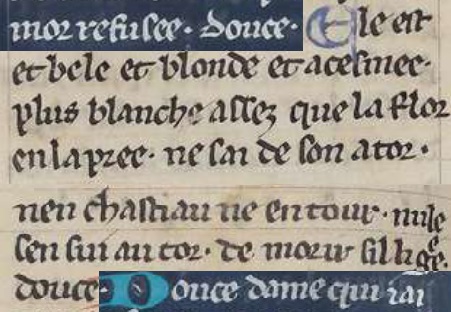 mor refusee · douce · Ele est
et bele et blonde et acesmee ·
plus blanche assez que la flor
en la pree · ne sai de son ator ·
nen chastiau ne en tour · nule
sen sui au tor · de morir sil li ge ·
douce · Douce dame qui iai